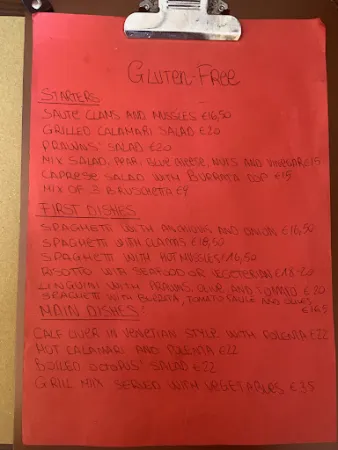 GLUTEN-FREE
STARTERS
SAUTE CLAMS AND MUSSLES €16,50
GRILLED CALAMARI SALAD €20
PRAWNS' SALAD €20
MIX SALAD, PEAR, BLUE CHEESE, NUTS AND VINEGAR €15
CAPRESE SALAD WITH BURRATA DOP €15
MIX OF 3 BRUSCHETTA €9
FIRST DISHES
SPAGHETTI WITH ANCHOVIES AND ONIONS €16,50
SPAGHETTI WITH CLAMS €18,50
SPAGHETTI WITH HOT MUSSLES €16,50
RISOTTO WITH SEAFOOD OR VEGETERIAN €18-20
LINGUINI WITH PRAWNS, OLIVE AND TOMATO €20
SPAGHETTI WITH BURRATA, TOMATO SAUCE AND OLIVES
€16,5
MAIN DISHES
CALF LIVER IN VENETIAN STYLE WITH POLENTA €22
HOT CALAMARI AND POLENTA €22
BOILED OCTOPUS' SALAD €22
GRILL MIX SERVED WITH VEGETABLES €35